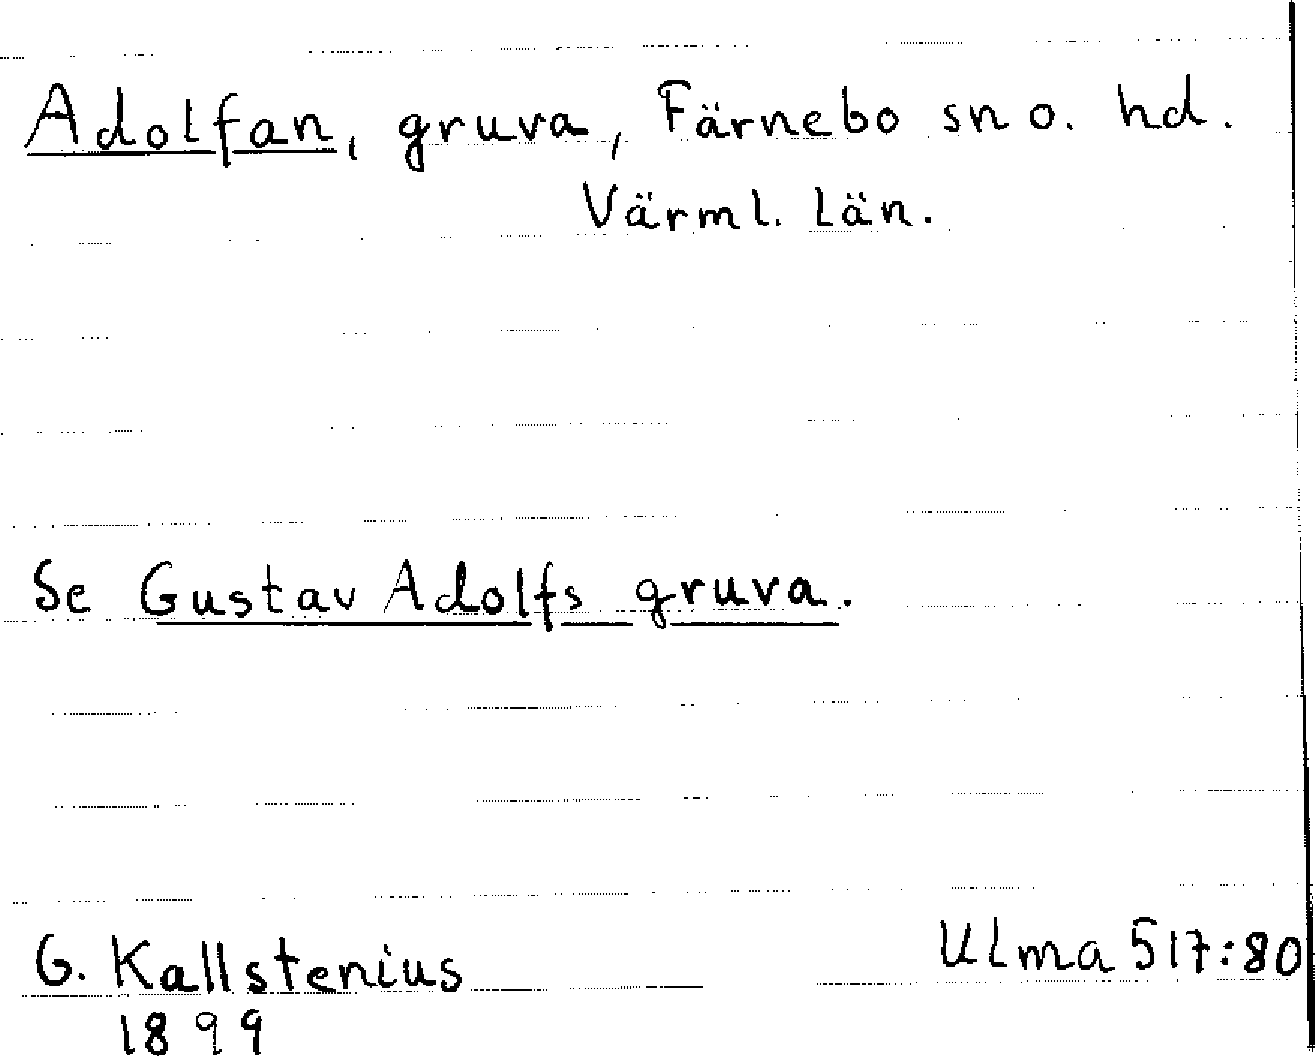 Adolfan, gruva, Färnebo sn o. hd.
Värml. län.
Se Gustav Adolfs gruva.
G. Kallstenius
1899
Ulma 517:80